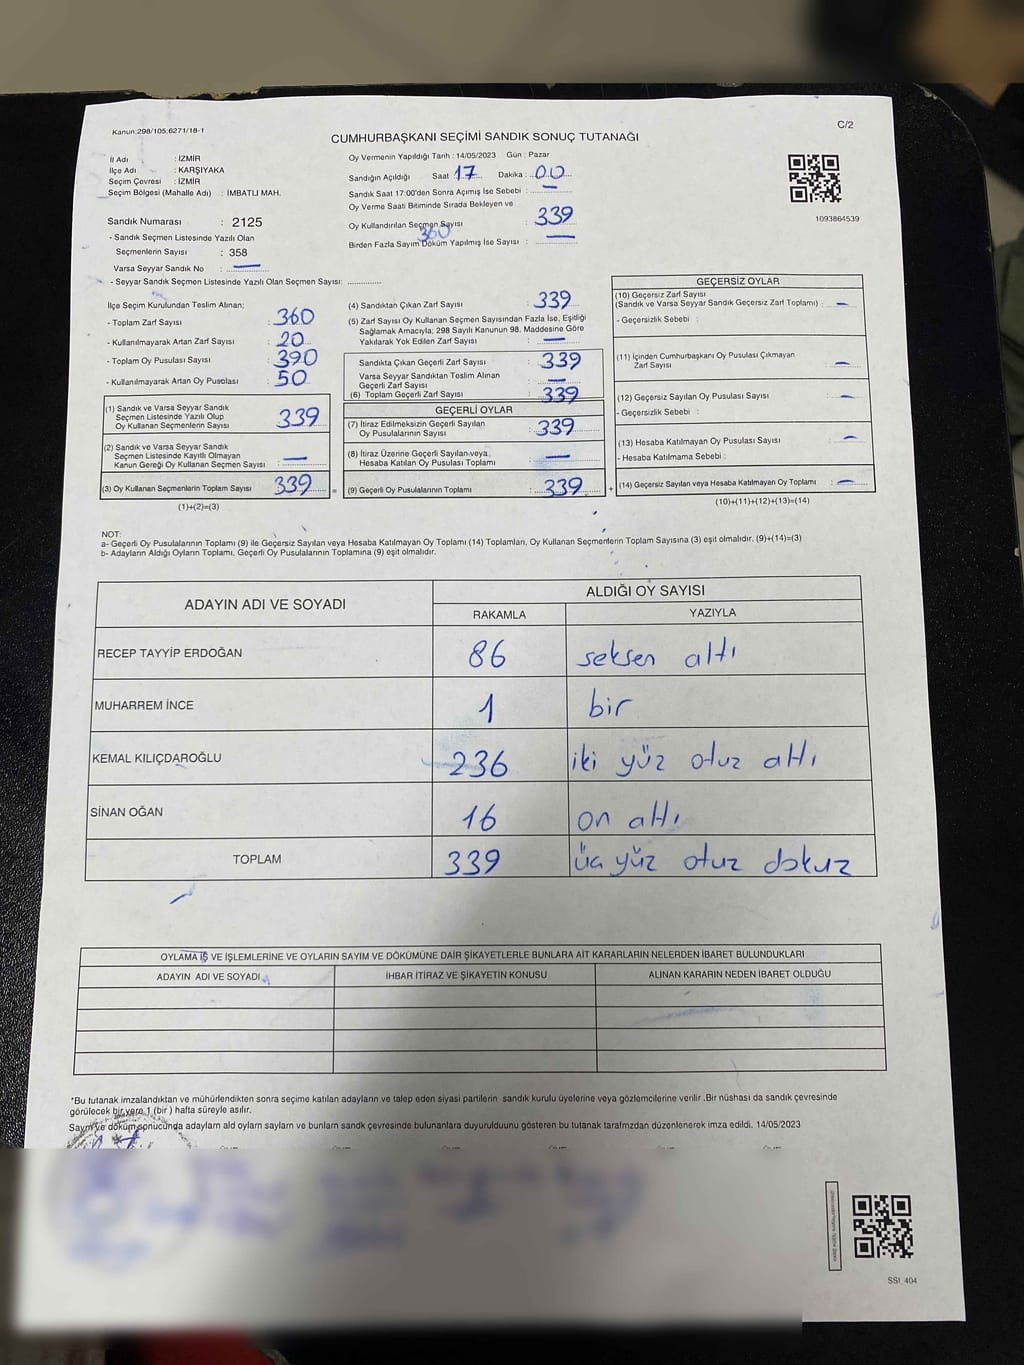 Kanun:298/105;6271/18-1
C/2
CUMHURBAŞKANI SEÇİMİ SANDIK SONUÇ TUTANAĞI
İl Adı : İZMİR
İlçe Adı : KARŞIYAKA
Seçim Çevresi : İZMİR
Seçim Bölgesi (Mahalle Adı) : İMBATLI MAH.
Sandık Numarası : 2125
- Sandık Seçmen Listesinde Yazılı Olan
Seçmenlerin Sayısı : 358
Varsa Seyyar Sandık No : —
- Seyyar Sandık Seçmen Listesinde Yazılı Olan Seçmen Sayısı: ..............
Oy Vermenin Yapıldığı Tarih : 14/05/2023 Gün : Pazar
Sandığın Açıldığı Saat 17 Dakika : 00
Sandık Saat 17:00'den Sonra Açımış İse Sebebi : —
Oy Verme Saati Bitiminde Sırada Bekleyen ve
Oy Kullandırılan Seçmen Sayısı : 339
360
Birden Fazla Sayım Döküm Yapılmış İse Sayısı : —
1093864539
İlçe Seçim Kurulundan Teslim Alınan;
- Toplam Zarf Sayısı : 360
- Kullanılmayarak Artan Zarf Sayısı : 20
- Toplam Oy Pusulası Sayısı : 390
- Kullanılmayarak Artan Oy Pusulası : 50
(1) Sandık ve Varsa Seyyar Sandık
Seçmen Listesinde Yazılı Olup
Oy Kullanan Seçmenlerin Sayısı : 339
(2) Sandık ve Varsa Seyyar Sandık
Seçmen Listesinde Kayıtlı Olmayan
Kanun Gereği Oy Kullanan Seçmen Sayısı : —
(3) Oy Kullanan Seçmenlerin Toplam Sayısı : 339 =
(1)+(2)=(3)
(4) Sandıktan Çıkan Zarf Sayısı : 339
(5) Zarf Sayısı Oy Kullanan Seçmen Sayısından Fazla İse, Eşitliği
Sağlamak Amacıyla; 298 Sayılı Kanunun 98. Maddesine Göre
Yakılarak Yok Edilen Zarf Sayısı : —
Sandıkta Çıkan Geçerli Zarf Sayısı : 339
Varsa Seyyar Sandıktan Teslim Alınan
Geçerli Zarf Sayısı : —
(6) Toplam Geçerli Zarf Sayısı : 339
GEÇERLİ OYLAR
(7) İtiraz Edilmeksizin Geçerli Sayılan
Oy Pusulalarının Sayısı : 339
(8) İtiraz Üzerine Geçerli Sayılan veya
Hesaba Katılan Oy Pusulası Toplamı : —
(9) Geçerli Oy Pusulalarının Toplamı : 339 +
GEÇERSİZ OYLAR
(10) Geçersiz Zarf Sayısı
(Sandık ve Varsa Seyyar Sandık Geçersiz Zarf Toplamı) : —
- Geçersizlik Sebebi :
(11) İçinden Cumhurbaşkanı Oy Pusulası Çıkmayan
Zarf Sayısı : —
(12) Geçersiz Sayılan Oy Pusulası Sayısı : —
- Geçersizlik Sebebi :
(13) Hesaba Katılmayan Oy Pusulası Sayısı : —
- Hesaba Katılmama Sebebi :
(14) Geçersiz Sayılan veya Hesaba Katılmayan Oy Toplamı : —
(10)+(11)+(12)+(13)=(14)
NOT:
a- Geçerli Oy Pusulalarının Toplamı (9) ile Geçersiz Sayılan veya Hesaba Katılmayan Oy Toplamı (14) Toplamları, Oy Kullanan Seçmenlerin Toplam Sayısına (3) eşit olmalıdır. (9)+(14)=(3)
b- Adayların Aldığı Oyların Toplamı, Geçerli Oy Pusulalarının Toplamına (9) eşit olmalıdır.
ADAYIN ADI VE SOYADI ALDIĞI OY SAYISI
RAKAMLA YAZIYLA
RECEP TAYYİP ERDOĞAN 86 seksen altı
MUHARREM İNCE 1 bir
KEMAL KILIÇDAROĞLU 236 iki yüz otuz altı
SİNAN OĞAN 16 on altı
TOPLAM 339 üç yüz otuz dokuz
OYLAMA İŞ VE İŞLEMLERİNE VE OYLARIN SAYIM VE DÖKÜMÜNE DAİR ŞİKAYETLERLE BUNLARA AİT KARARLARIN NELERDEN İBARET BULUNDUKLARI
ADAYIN ADI VE SOYADI İHBAR İTİRAZ VE ŞİKAYETİN KONUSU ALINAN KARARIN NEDEN İBARET OLDUĞU
*Bu tutanak imzalandıktan ve mühürlendikten sonra seçime katılan adayların ve talep eden siyasi partilerin sandık kurulu üyelerine veya gözlemcilerine verilir .Bir nüshası da sandık çevresinde
görülecek bir yere 1 (bir ) hafta süreyle asılır.
Sayım ve döküm sonucunda adayların ald oyların sayları ve bunların sandk çevresinde bulunanlara duyurulduunu gösteren bu tutanak tarafmzdan düzenlenerek imza edildi. 14/05/2023
SSI_404